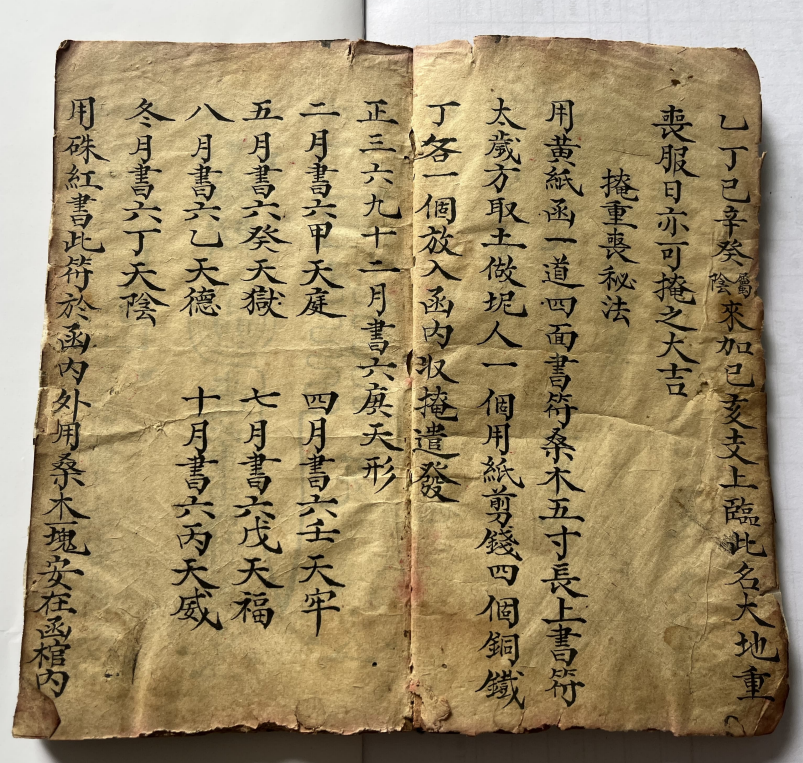 乙丁己辛癸屬陰來加己亥支上臨此名大地重
喪服日亦可掩之大吉
掩重喪秘法
用黃紙函一道四面書符桑木五寸長上書符
太歲方取土做坭人一個用紙剪錢四個銅鐵
丁各一個放入函內収掩遣發
正三六九十二月書六庚天形
二月書六甲天庭 四月書六壬天牢
五月書六癸天獄 七月書六戊天福
八月書六乙天德 十月書六丙天威
冬月書六丁天陰
用硃紅書此符於函內外用桑木一塊安在函棺內